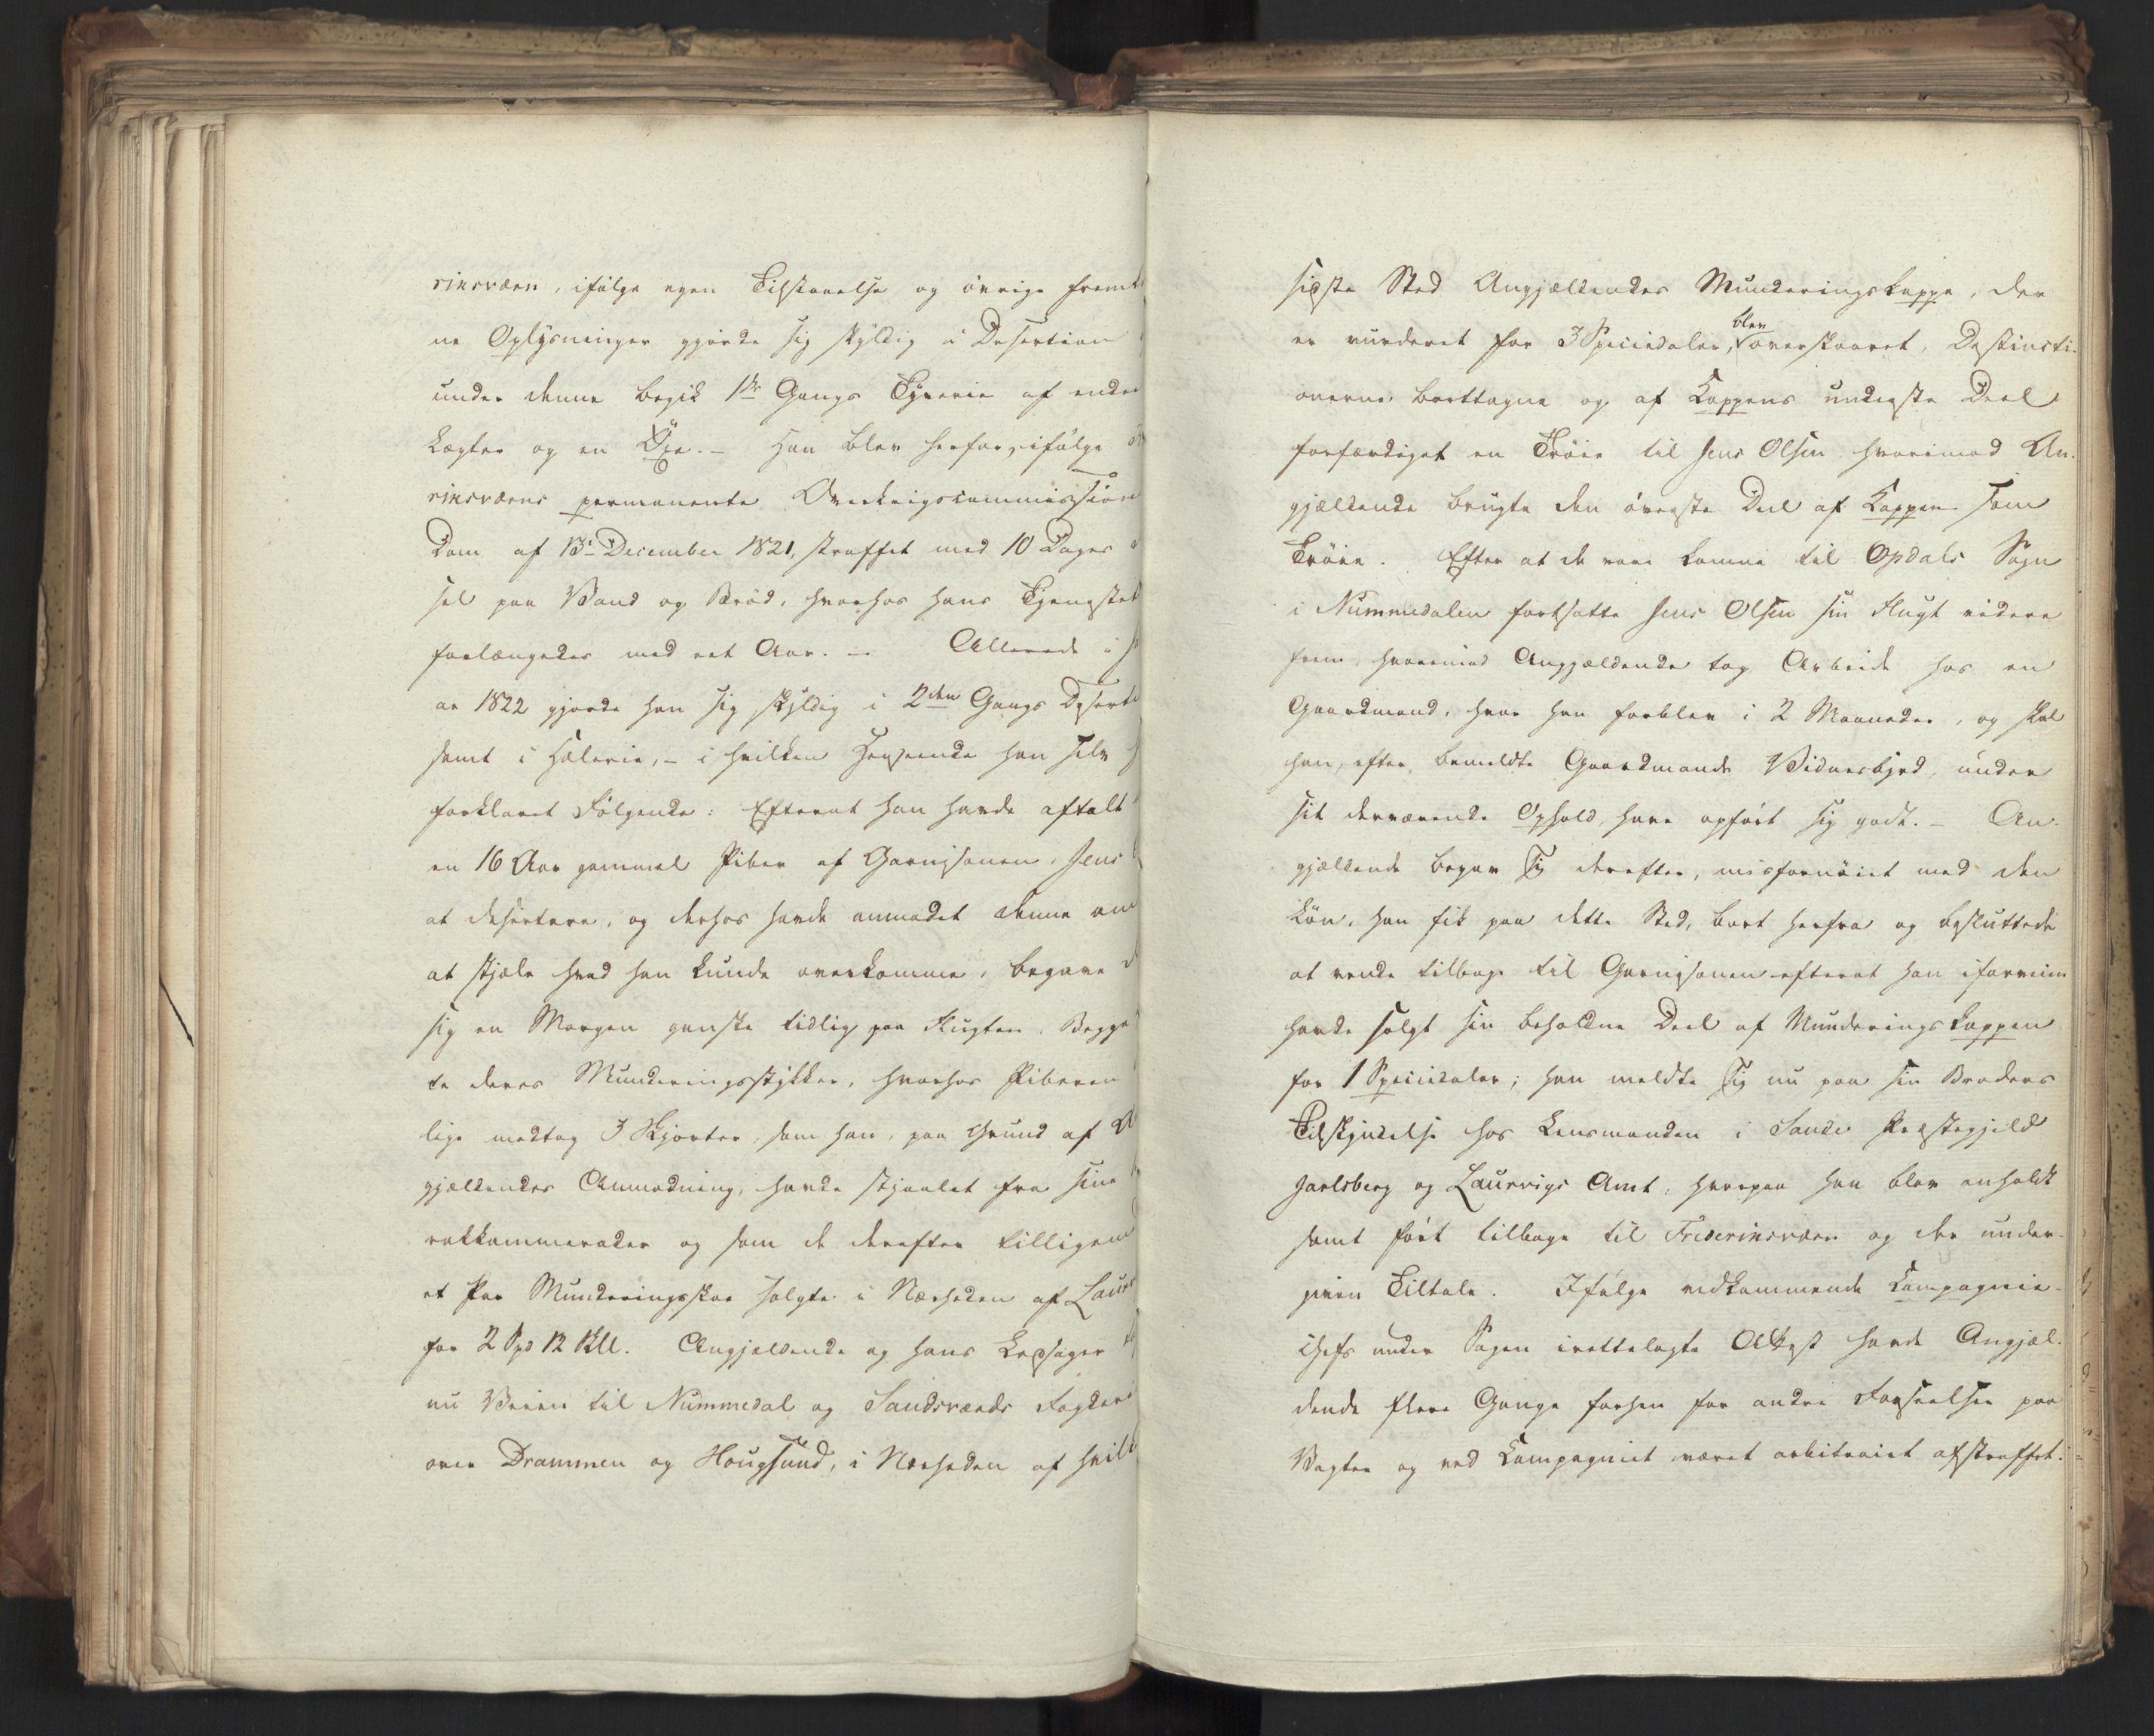 rinsværn, ifølge egen Tilstaaelse og øvrige fremt
ne Oplysninger gjorde sig skyldig i Desertion
under denne begik 1ste Gangs Tyverie af endee
Lægter og en Öxe. – Han blev herfor, ifølge
rinsværns permanente Overkrigscommission
Dom af 13de December 1821, straffet med 10 Dages
sel paa Vand og Brød, hvorhos hans Tjenestet
forlængedes med eet Aar. – Allerede i
ar 1822 gjorde han sig skyldig i 2den Gangs Deserti
samt i Hælerie, – i hvilken Henseende han selv
forklaret Følgende: Efterat han havde aftalt
en 16 Aar gammel Piber af Garnisonen, Jens
at desertere, og derhos havde anmodet denne om
at stjæle hvad han kunde overkomme, begave
sig en Morgen ganske tidlig paa Flugten. Begge
te deres Munderingsstykker, hvorhos Piberen
lige medtog 3 Skjorter, som han, paa Grund af A
gjældendes Anmodning, havde stjaalet fra sine
volkammerader og som de derefter tilligem
et Par Munderingsskoe solgte i Nærheden af Laur
for 2 Spd 12 Sk. Angjældende og hans Ledsager
nu Veien til Nummedal og Sandsværds Fogderi
over Drammen og Hougsund, i Nærheden af hvilk
sidste Sted Angjældendes Munderingskappe, der
er vurderet for 3 Speciedaler, blev overskaaret, Distincti-
onerne borttagne og af Kappens underste Deel
forfærdiget en Trøie til Jens Olsen hvorimod An-
gjældende brugte den øverste Deel af Kappen som
Trøie. Efter at de vare komne til Opdals Sogn
i Nummedalen fortsatte Jens Olsen sin Flugt videre
frem, hvorimod Angjældende tog Arbeide hos en
Gaardmand, hvor han forblev i 2 Maaneder, og skal
han, efter bemeldte Gaardmands Vidnesbyrd, under
sit derværende Ophold, have opført sig godt. – An-
gjældende begav sig derefter, misfornøiet med den
Løn, han fik paa dette Sted, bort herfra og besluttede
at vende tilbage til Garnisonen efterat han iforveien
havde solgt sin beholdne Deel af Munderingskappen
for 1 Speciedaler; han meldte sig nu paa sin Broders
Tilskyndelse hos Lensmanden i Sande Præstegjeld
Jarlsberg og Laurvigs Amt, hvorpaa han blev anholdt
samt ført tilbage til Fredericsværn og der under-
given Tiltale. Ifølge vedkommende Compagnie-
chefs under Sagen irettelagte Attest havde Angjæl-
dende flere Gange forhen for andre Forseelser paa
Vagten og ved Compagniet været arbitrairt afstraffet.